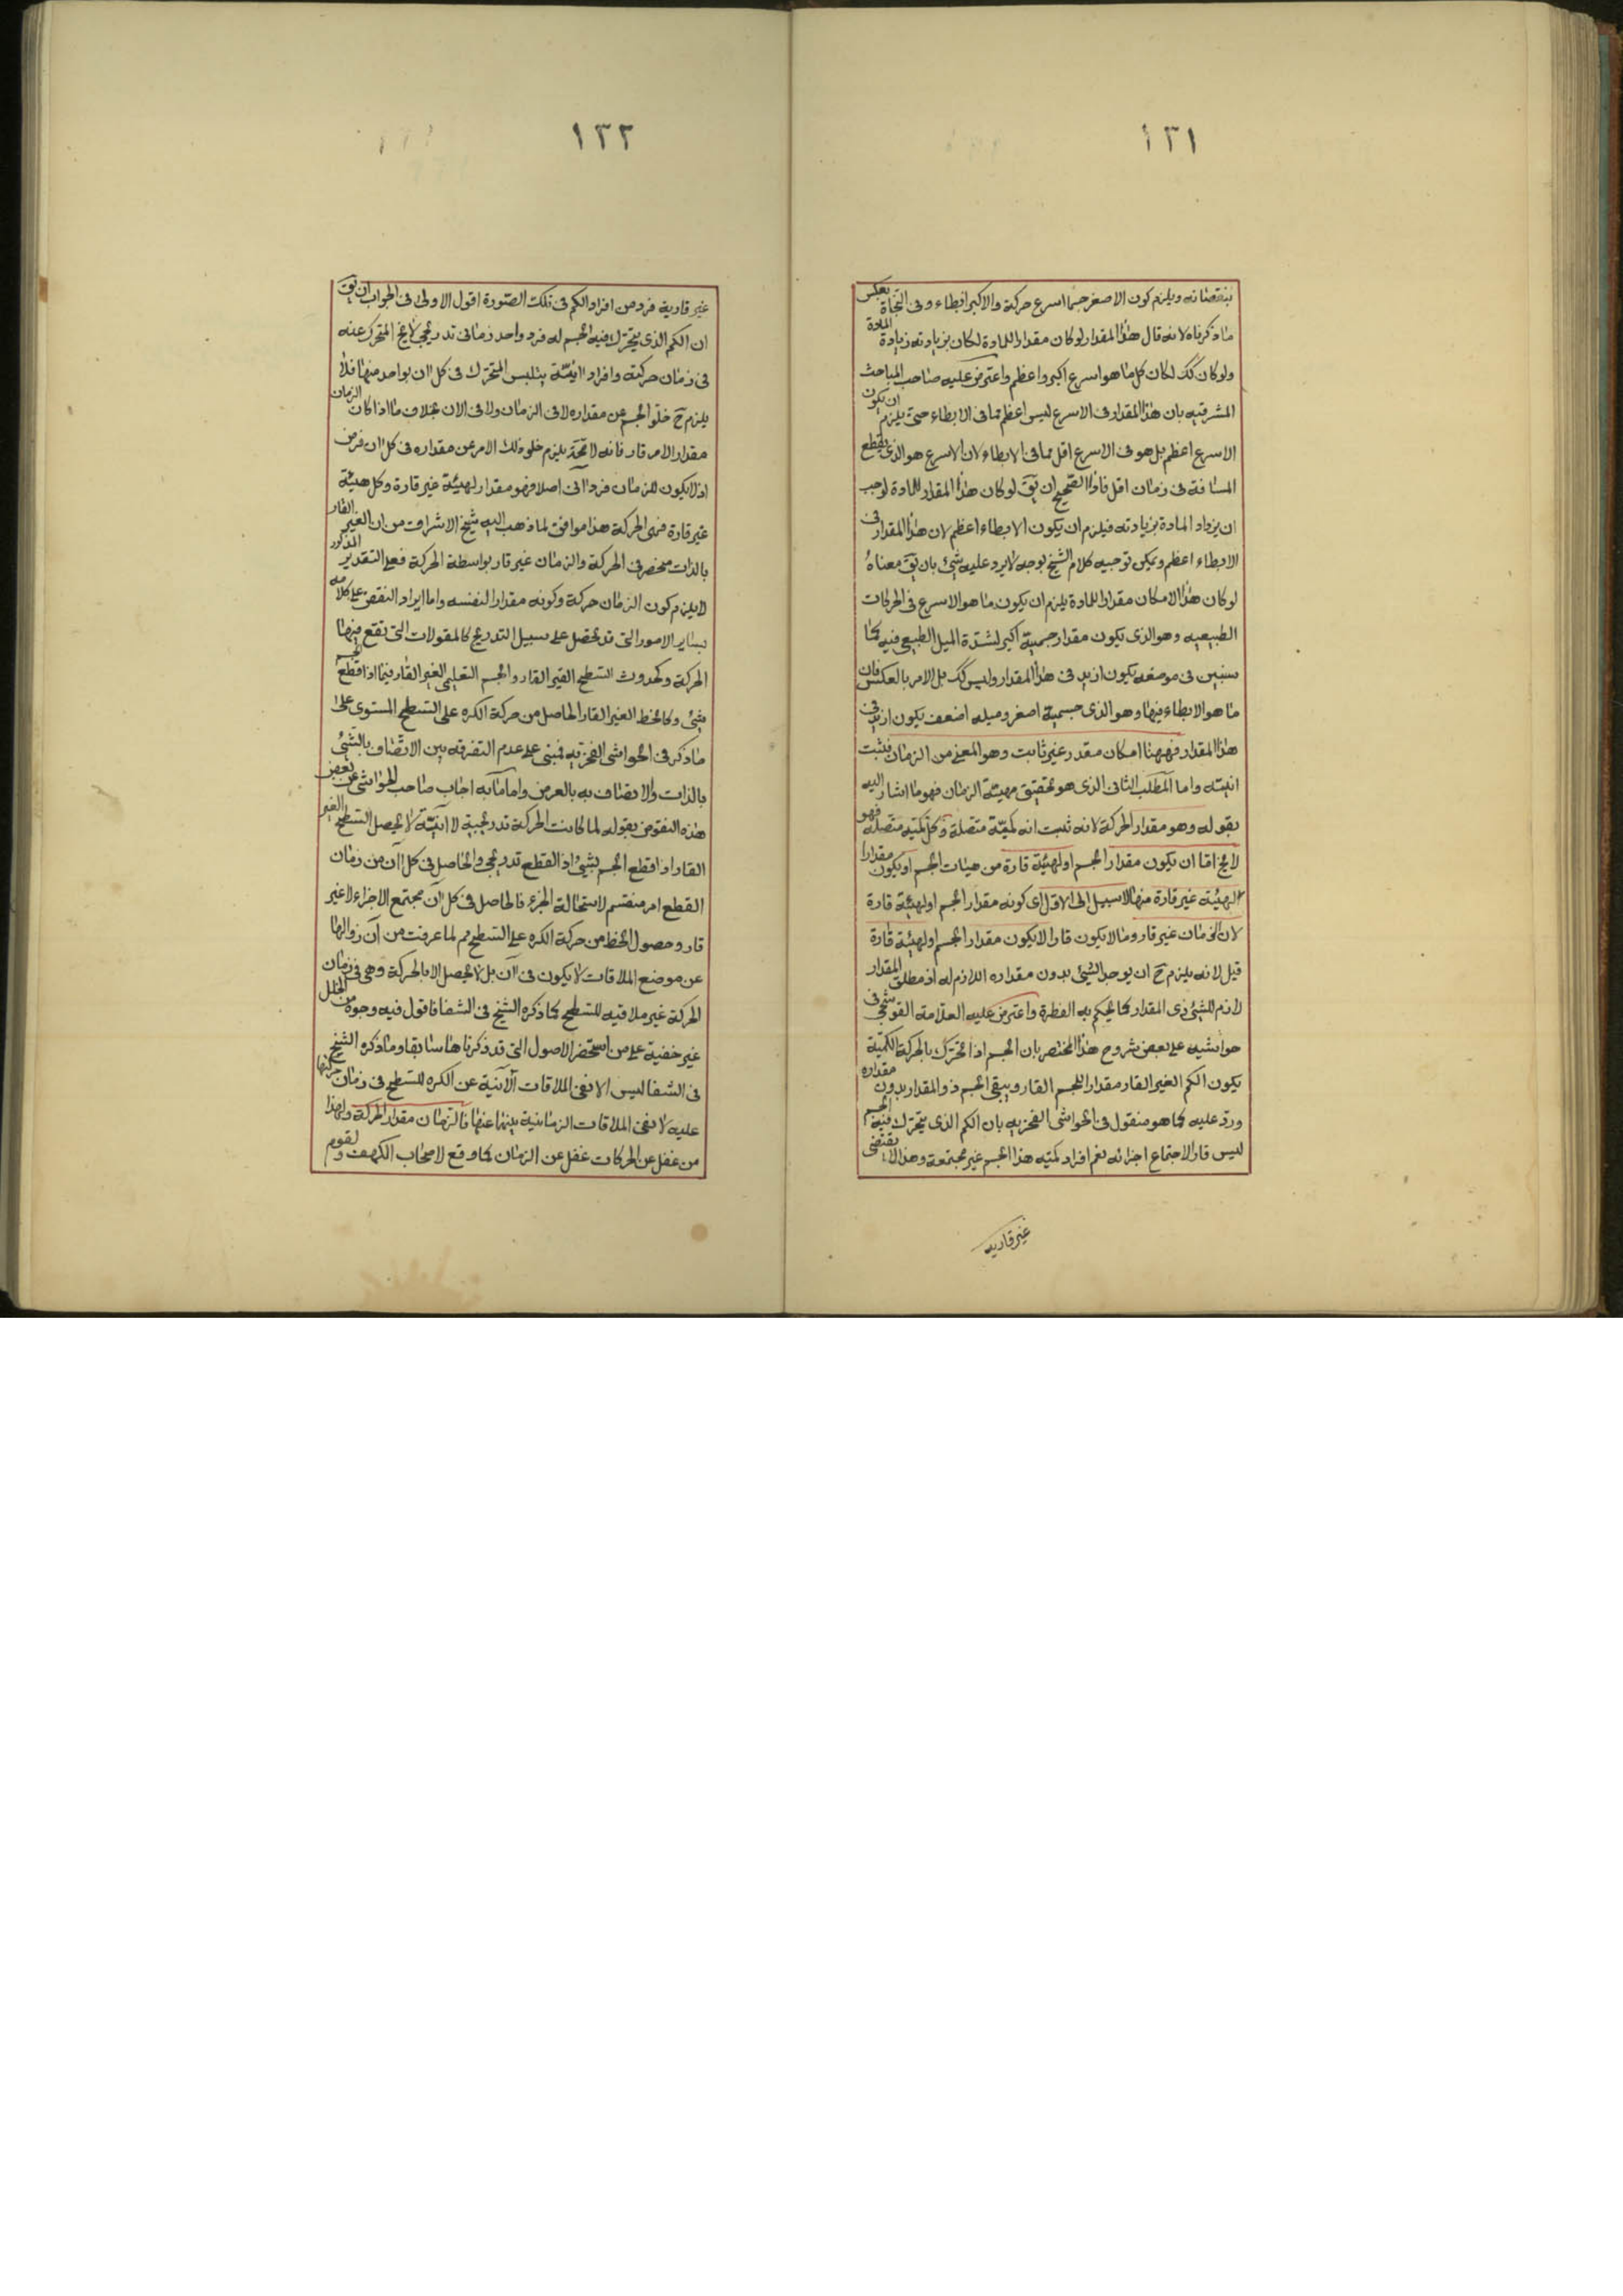 ١٣١
بنقصانه ويلزم كون الاصغر جسما اسرع حركة والاكبر ابطاء وفى النجاة بعكس
ما ذكرناه لانه قال هذا المقدار لو كان مقدارا للمادة لكان بزيادته زيادة المادة
ولو كان كك لكان كل ما هو اسرع اكبر واعظم واعترض عليه صاحب المباحث
المشرقيه بان هذا المقدار فى الاسرع ليس اعظم مما فى الابطاء حتى يلزم ان يكون
الاسرع اعظم بل هو فى الاسرع اقل مما فى الابطاء لان الاسرع هو الذى يقطع
المسافة فى زمان اقل فاذا الصحيح ان يق لو كان هذا المقدار للمادة لوجب
ان يزداد المادة بزيادته فيلزم ان يكون الابطاء اعظم لان هذا المقدار فى
الابطاء اعظم ويمكن توجيه كلام الشيخ بوجه لا يرد عليه شئ بان يق معناه
لو كان هذا الامكان مقدارا للمادة يلزم ان يكون ما هو الاسرع فى الحركات
الطبيعيه وهو الذى يكون مقدار جسمية اكبر لشدة الميل الطبيعى فيه كما
سنبين فى موضعه يكون ازيد فى هذا المقدار وليس كك بل الامر بالعكس فان
ما هو الابطاء فيها وهو الذى جسمية اصغر وميله اضعف يكون ازيد فى
هذا المقدار فههنا امكان مقدر غير ثابت وهو المعنى من الزمان فثبت
انيته واما المطلب الثانى الذى هو تحقيق مهية الزمان فهو ما اشار اليه
بقوله وهو مقدار الحركة لانه ثبت انه كمية متصلة وكل كمية متصلة فهو
لا يخ اما ان يكون مقدار الجسم او لهيئة قارة من هيات الجسم او يكون مقدارا
لهيئة غير قارة منها لا سبيل الى الاول اى كونه مقدار الجسم او لهيئة قارة
لان الزمان غير قار وما لا يكون قارا لا يكون مقدار الجسم او لهيئة قارة
قيل لانه يلزم ح ان يوجد الشئ بدون مقداره اللازم له اذ مطلق المقدار
لازم للشئ ذى المقدار كما يحكم به الفطرة واعترض عليه العلامة القوشجى فى
حواشيه على بعض شروح هذا المختصر بان الجسم اذا تحرك بالحركة الكمية
يكون الكم الغير القار مقدارا للجسم القار ويبقى الجسم ذو المقدار بدون مقداره
ورد عليه كما هو منقول فى الحواشى الفخريه بان الكم الذى يتحرك فيه الجسم
ليس قار الاجتماع اجزائه نعم افراد كميه هذا الجسم غير مجتمعة وهذا لا يقتضى
غير قاريه
١٣٢
غير قارية فرد من افراد الكم فى تلك الصورة اقول الاولى فى الجواب ان يق
ان الكم الذى يتحرك فيه الجسم له فرد واحد زمانى تدريجى لا يخ المتحرك عنه
فى زمان حركته وافراد انيّة يتلبس المتحرك فى كل ان بواحد منها فلا
يلزم ح خلو الجسم عن مقداره لا فى الزمان ولا فى الان بخلاف ما اذا كان الزمان
مقدارا لامر قار فانه لا محة يلزم خلو ذلك الامر عن مقداره فى كل ان فرض
اذ لا يكون للزمان فرد آنى اصلا فهو مقدار لهيئة غير قارة وكل هيئة
غير قارة فهى الحركة هذا موافق لما ذهب اليه شيخ الاشراق من ان الغير القار
بالذات منحصر فى الحركة والزمان غير قار بواسطة الحركة فعلى التقدير المذكور
لا يلزم كون الزمان حركة وكونه مقدارا لنفسه واما ايراد النقض على كلامه
بساير الامور التى قد تحصل على سبيل التدريج كالمقولات التى تقع فيها
الحركة وكحدوث السطح الغير القار والجسم التعليمى الغير القار فيما اذا قطع الجسم
بشئ وكالخط الغير القار الحاصل من حركة الكره على السطح المستوى على
ما ذكر فى الحواشى الفخريه فمبنى على عدم التفرقه بين الاتصاف بالشئ
بالذات والاتصاف به بالعرض واما ما به اجاب صاحب الحواشى عن بعض
هذه النقوض بقوله لما كانت الحركة تدريجية لا انيّة لا يحصل السطح الغير
القار اذا قطع الجسم بشئ اذ القطع تدريجى والحاصل فى كل آن من زمان
القطع امر منقسم لاستحالة الجزء فالحاصل فى كل آن مجتمع الاجزاء لا غير
قار وحصول الخط من حركة الكره على السطح مم لما عرفت من آن زوالها
عن موضع الملاقات لا يكون فى آن بل لا يحصل الا بالحركة وهى فى زمان
الحركة غير ملاقيه للسطح كما ذكره الشيخ فى الشفا فاقول فيه وجوه من الخلل
غير خفية على من استحضر الاصول التى قد ذكرناها سابقا وما ذكره الشيخ
فى الشفا ليس الا نفى الملاقات الآنية عن الكره للسطح فى زمان حركتها
عليه لا نفى الملاقات الزمانية بينهما عنها فالزمان مقدار الحركة ولهذا
من غفل عن الحركات غفل عن الزمان كما وقع لاصحاب الكهف ولقوم